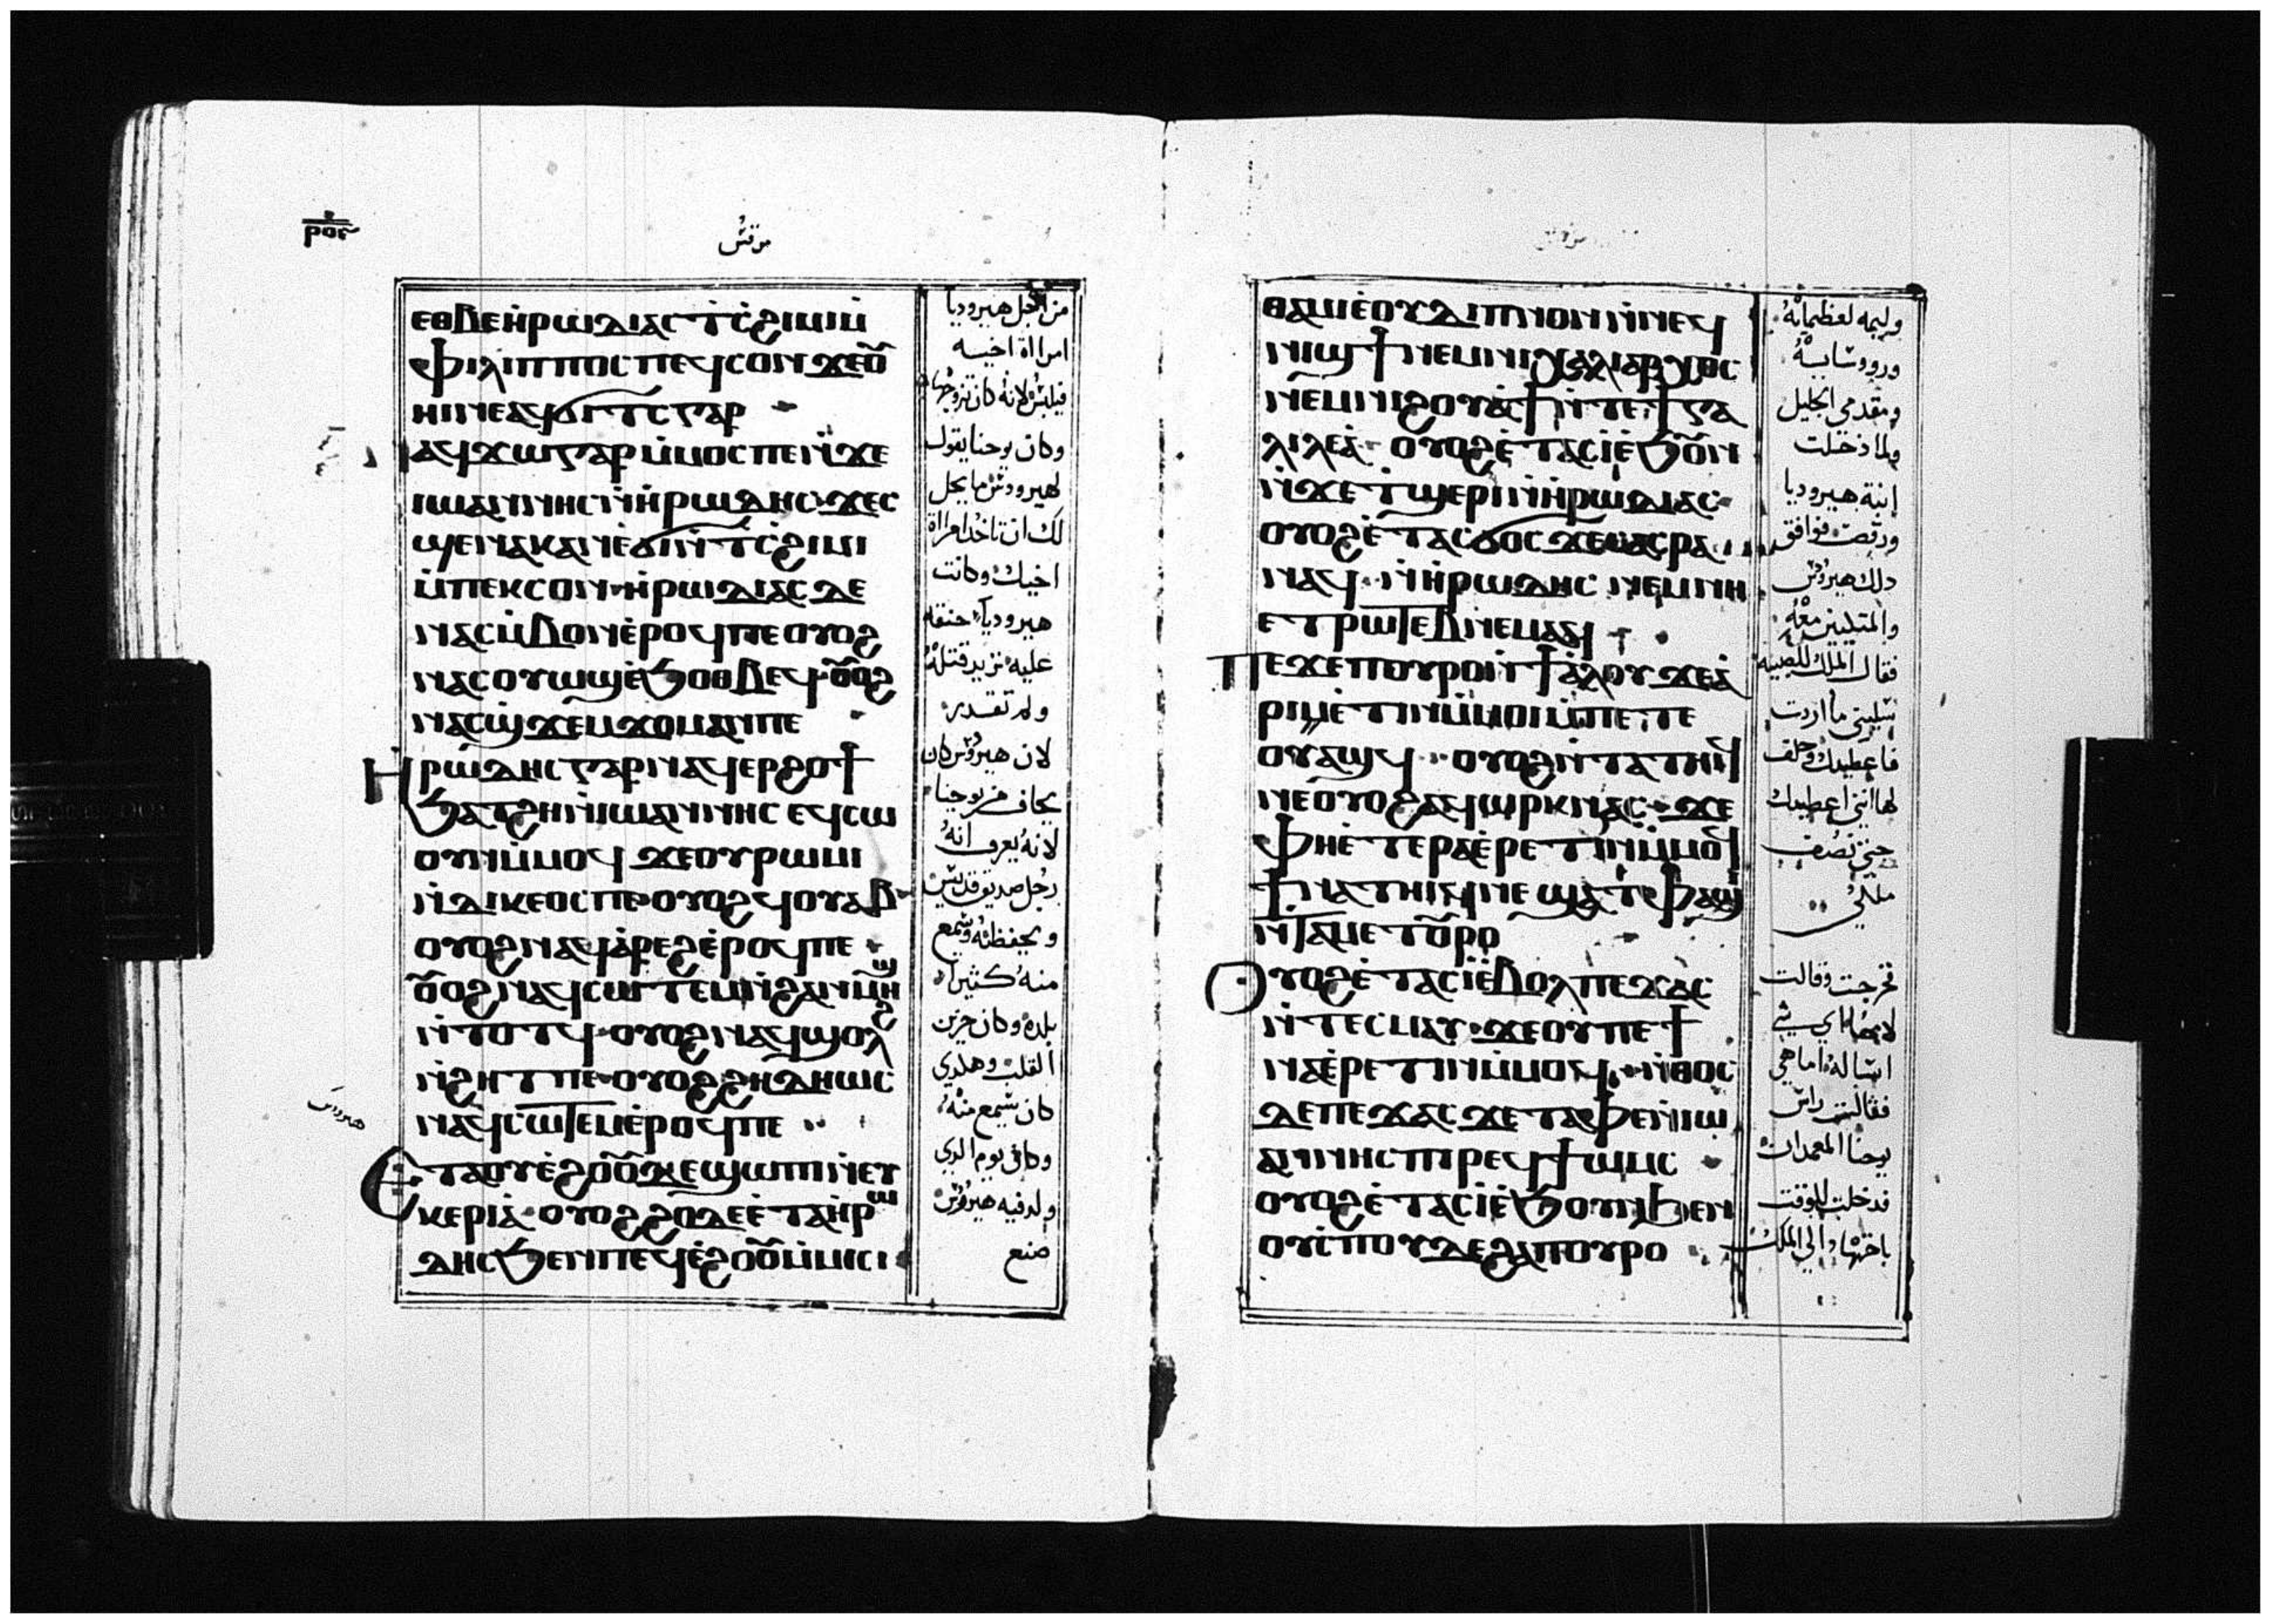 ⲣⲟⲋ
مرقس
ⲉⲑⲃⲉⲏ̀ⲣⲱⲇⲓⲁⲥ ϯⲥ̀ϩⲓⲙⲓ ⲙ̀
ⲫⲓⲗⲓⲡⲡⲟⲥ ⲡⲉϥⲥⲟⲛ ϫⲉⲟ̅
ⲏⲓ ⲛⲉⲁϥϭⲓⲧⲥ ⲅⲁⲣ
ⲁϥϫⲱ ⲅⲁⲣ ⲙ̀ⲙⲟⲥ ⲡⲉ ⲛ̀ϫⲉ
ⲓⲱⲁⲛⲛⲏⲥ ⲛ̀ⲏ̀ⲣⲱⲇⲏⲥ ϫⲉⲥ
ϣⲉ ⲛⲁⲕ ⲁⲛ ⲉ̀ϭⲓ ⲛ̀ϯⲥ̀ϩⲓⲙⲓ
ⲙ̀ⲡⲉⲕⲥⲟⲛ ⲏ̀ⲣⲱⲇⲓⲁⲥ ⲇⲉ
ⲛⲁⲥⲙ̀ⲃⲟⲛ ⲉ̀ⲣⲟϥ ⲡⲉ ⲟⲩⲟϩ
ⲛⲁⲥⲟⲩⲱϣ ⲉ̀ϧⲟⲑⲃⲉϥ ⲟ̅ⲟϩ
ⲛⲁⲥϣ̀ϫⲉⲙϫⲟⲙ ⲁⲛ ⲡⲉ
Ⲏⲣⲱⲇⲏⲥ ⲅⲁⲣ ⲛⲁϥⲉⲣϩⲟϯ
ϧⲁⲧϩⲏ ⲛ̀ⲓⲱⲁⲛⲛⲏⲥ ⲉϥⲥⲱ
ⲟⲩⲛ ⲙ̀ⲙⲟϥ ϫⲉ ⲟⲩⲣⲱⲙⲓ
ⲛ̀ⲇⲓⲕⲉⲟⲥ ⲡⲉ ⲟⲩⲟϩ ϥⲟⲩⲁⲃ
ⲟⲩⲟϩ ⲛⲁϥⲁ̀ⲣⲉϩ ⲉ̀ⲣⲟϥ ⲡⲉ
ⲟ̅ⲟϩ ⲛⲁϥⲥⲱⲧⲉⲙ ⲛ̀ϩⲁⲛⲙⲏϣ
ⲛ̀ⲧⲟⲧϥ ⲟⲩⲟϩ ⲛⲁϥϣⲟⲗϩ
ⲛ̀ϩⲏⲧ ⲡⲉ ⲟⲩⲟϩ ϩⲏⲇⲏⲱⲥ
ⲛⲁϥⲥⲱⲧⲉⲙ ⲉ̀ⲣⲟϥ ⲡⲉ
Ⲉⲧⲁⲟⲩⲉ̀ϩⲟⲟ̅ ϫⲉ ϣⲱⲡⲓ ⲛ̀ⲉⲩ
ⲕⲉⲣⲓⲁ̀ ⲟⲩⲟϩ ϩⲟⲇⲉ ⲉ̀ⲧⲁ ⲏ̀ⲣⲱ
ⲇⲏⲥ ϧⲉⲛ ⲡⲉϥⲉ̀ϩⲟⲟ̅ ⲙ̀ⲙⲓⲥⲓ
من اجل هيروديا
امراة اخيه
فيلبس لانه كان تزوجها
وكان يوحنا يقول
لهيرودس ما يحل
لك ان تاخد امراة
اخيك وكانت
هيروديا حنقه
عليه تريد قتله
ولم تقدر
لان هيرودس كان
يخاف من يوحنا
لانه يعرف انه
رجل صديق قديس
ويحفظه ويسمع
منه كثيرا
بلده وكان حزين
القلب وهكدي
كان يسمع منه
وكان يوم الدي
ولد فيه هيرودس
صنع
هيرودس
مرقس
ⲑⲁⲙⲓⲉ̀ ⲟⲩⲇⲓⲡⲛⲟⲛ ⲛ̀ⲛⲉϥ
ⲛⲓϣϯ ⲛⲉⲙ ⲛⲓⲭⲓⲗⲓⲁⲣⲭⲟⲥ
ⲛⲉⲙ ⲛⲓϩⲟⲩⲁϯ ⲛ̀ⲧⲉ ϯⲅⲁ
ⲗⲓⲗⲉⲁ̀ ⲟⲩⲟϩ ⲉ̀ⲧⲁⲥⲓ̀ ⲉ̀ϧⲟ̅ⲛ
ⲛ̀ϫⲉ ⲧ̀ϣⲉⲣⲓ ⲛ̀ⲏ̀ⲣⲱⲇⲓⲁⲥ
ⲟⲩⲟϩ ⲉ̀ⲧⲁⲥϭⲟⲥϫⲉⲥ ⲁⲥⲣⲁ
ⲛⲁϥ ⲛ̀ⲏ̀ⲣⲱⲇⲏⲥ ⲛⲉⲙ ⲛⲏ
ⲉⲧⲣⲱⲧⲉⲃ ⲛⲉⲙⲁϥ
Ⲡⲉϫⲉ ⲡⲟⲩⲣⲟ ⲛ̀ϯⲁ̀ⲗⲟⲩ ϫⲉ ⲁ̀
ⲣⲓⲉ̀ⲧⲓⲛ ⲙ̀ⲙⲟⲓ ⲙ̀ⲡⲉⲧⲉ
ⲟⲩⲁϣϥ ⲟⲩⲟϩ ⲛ̀ⲧⲁⲧⲏⲓϥ
ⲛⲉ ⲟⲩⲟϩ ⲁϥⲱⲣⲕ ⲛⲁⲥ ϫⲉ
ⲫⲏ ⲉ̀ⲧⲉⲣⲁⲉ̀ⲣⲉⲧⲓⲛ ⲙ̀ⲙⲟϥ
ϯⲛⲁⲧⲏⲓϥ ⲛⲉ ϣⲁ ⲧ̀ⲫⲁϣⲓ
ⲛ̀ⲧⲁⲙⲉⲧⲟ̅ⲣⲟ
Ⲟⲩⲟϩ ⲉ̀ⲧⲁⲥⲓ̀ ⲉ̀ⲃⲟⲗ ⲡⲉϫⲁⲥ
ⲛ̀ⲧⲉⲥⲙⲁⲩ ϫⲉ ⲟⲩ ⲡⲉϯ
ⲛⲁⲉ̀ⲣⲉⲧⲓⲛ ⲙ̀ⲙⲟϥ ⲛ̀ⲑⲟⲥ
ⲇⲉ ⲡⲉϫⲁⲥ ϫⲉ ⲧⲁⲫⲉ ⲛ̀ⲓⲱ
ⲁⲛⲛⲏⲥ ⲡⲓⲣⲉϥϯⲱⲙⲥ
ⲟⲩⲟϩ ⲉ̀ⲧⲁⲥⲓ̀ ⲉ̀ϧⲟⲩⲛ ϧⲉⲛ
ⲟⲩⲥ̀ⲡⲟⲩⲇⲏ ϩⲁ ⲡⲟⲩⲣⲟ
وليمه لعظمائه
وروساييه
ومقدمي الجليل
ولما دخلت
ابنة هيروديا
ورقصت فوافق
دلك هيرودس
والمتكيين معه
فقال الملك للصبيه
سليني ما اردت
فاعطيك وحلف
لها انني اعطيك
حتي نصف
ملكي
فخرجت وقالت
لامها اي شي
اساله اما هي
فقالت راس
يوحنا المعمدان
فدخلت للوقت
الي الملك